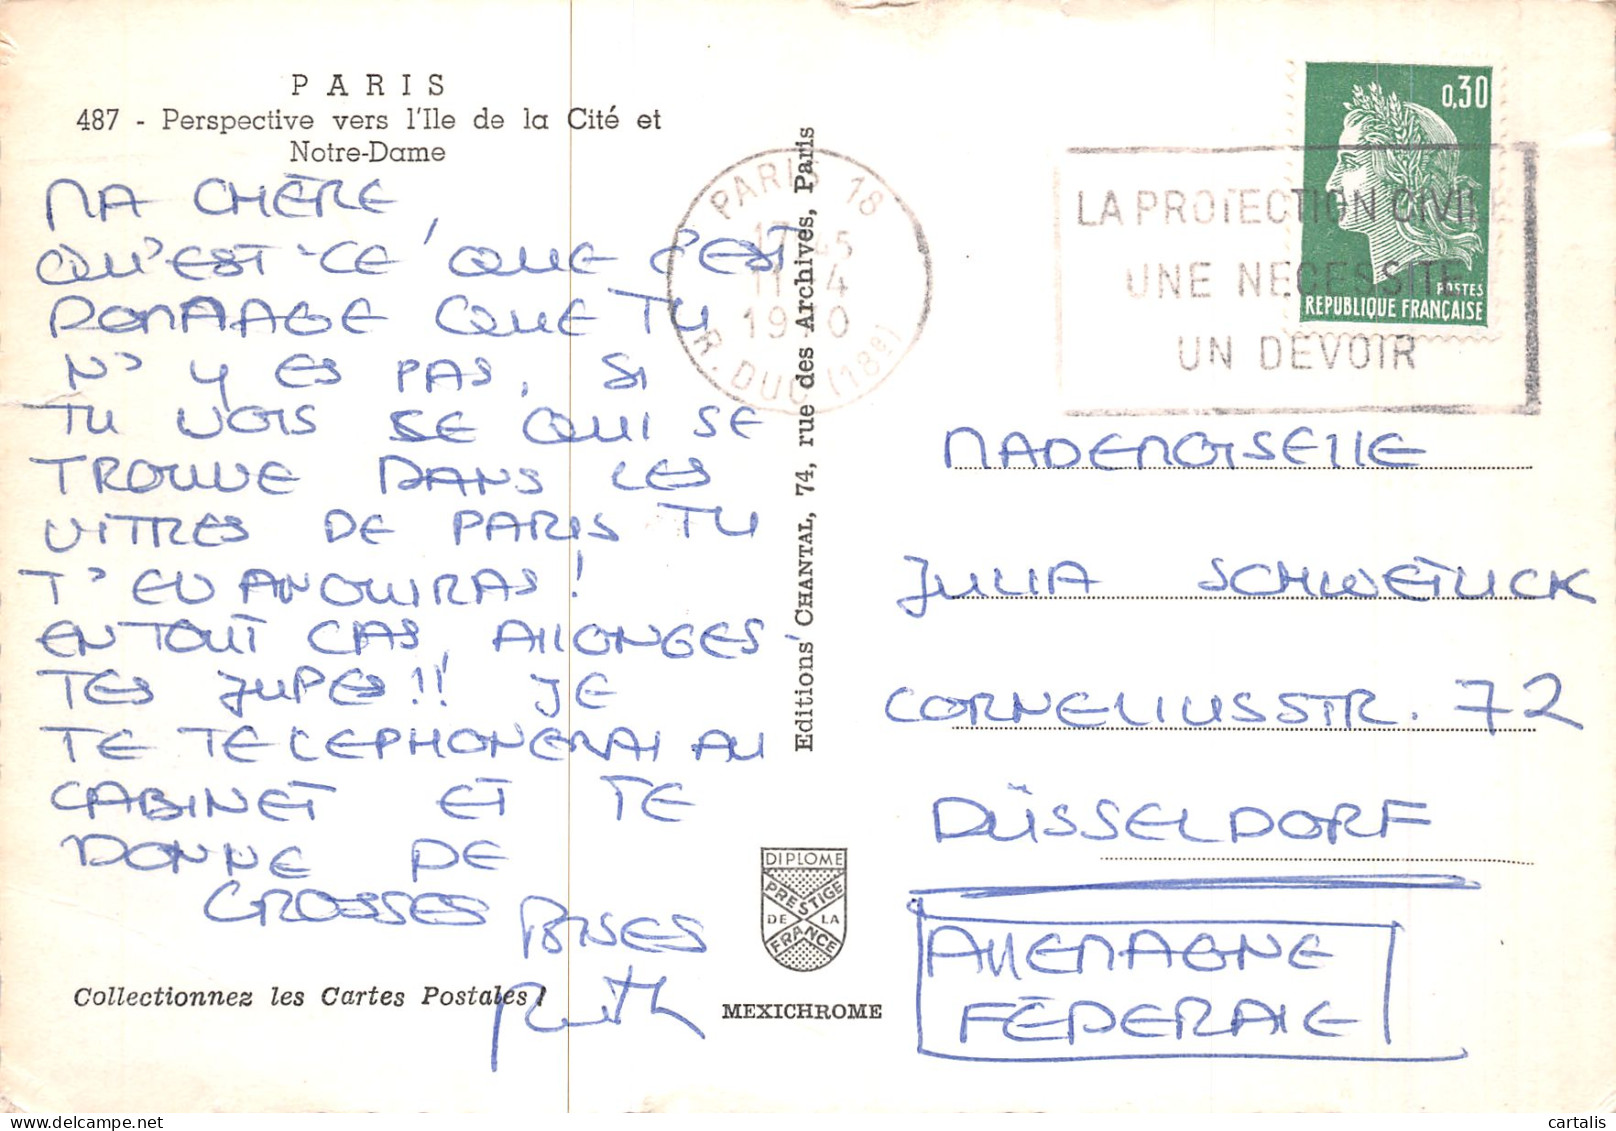 PARIS
487 - Perspective vers l'Ile de la Cité et
Notre-Dame
MA CHÈRE,
QU'EST-CE QUE C'EST
DOMMAGE QUE TU
N'Y ES PAS, SI
TU VOIS SE QUI SE
TROUVE DANS LES
VITRES DE PARIS TU
T'EVANOUIRAS!
EN TOUT CAS, AllONGES
TES JUPES!! JE
TE TELEPHONERAI AU
CABINET ET TE
DONNE DE
GROSSES BISES
Ruth
Collectionnez les Cartes Postales !
Editions CHANTAL, 74, rue des Archives, Paris
DIPLOME
PRESTIGE
DE LA
FRANCE
MEXICHROME
PARIS 18
17 45
11 4
19 0
R. DUC (18e)
0,30
POSTES
REPUBLIQUE FRANÇAISE
LA PROTECTION CIVILE
UNE NECESSITE
UN DEVOIR
MADEMOISEllE
JULIA SCHWETLICK
CORNELIUSSTR. 72
DÜSSELDORF
AllEMAGNE
FÉDERAlE
cartalis